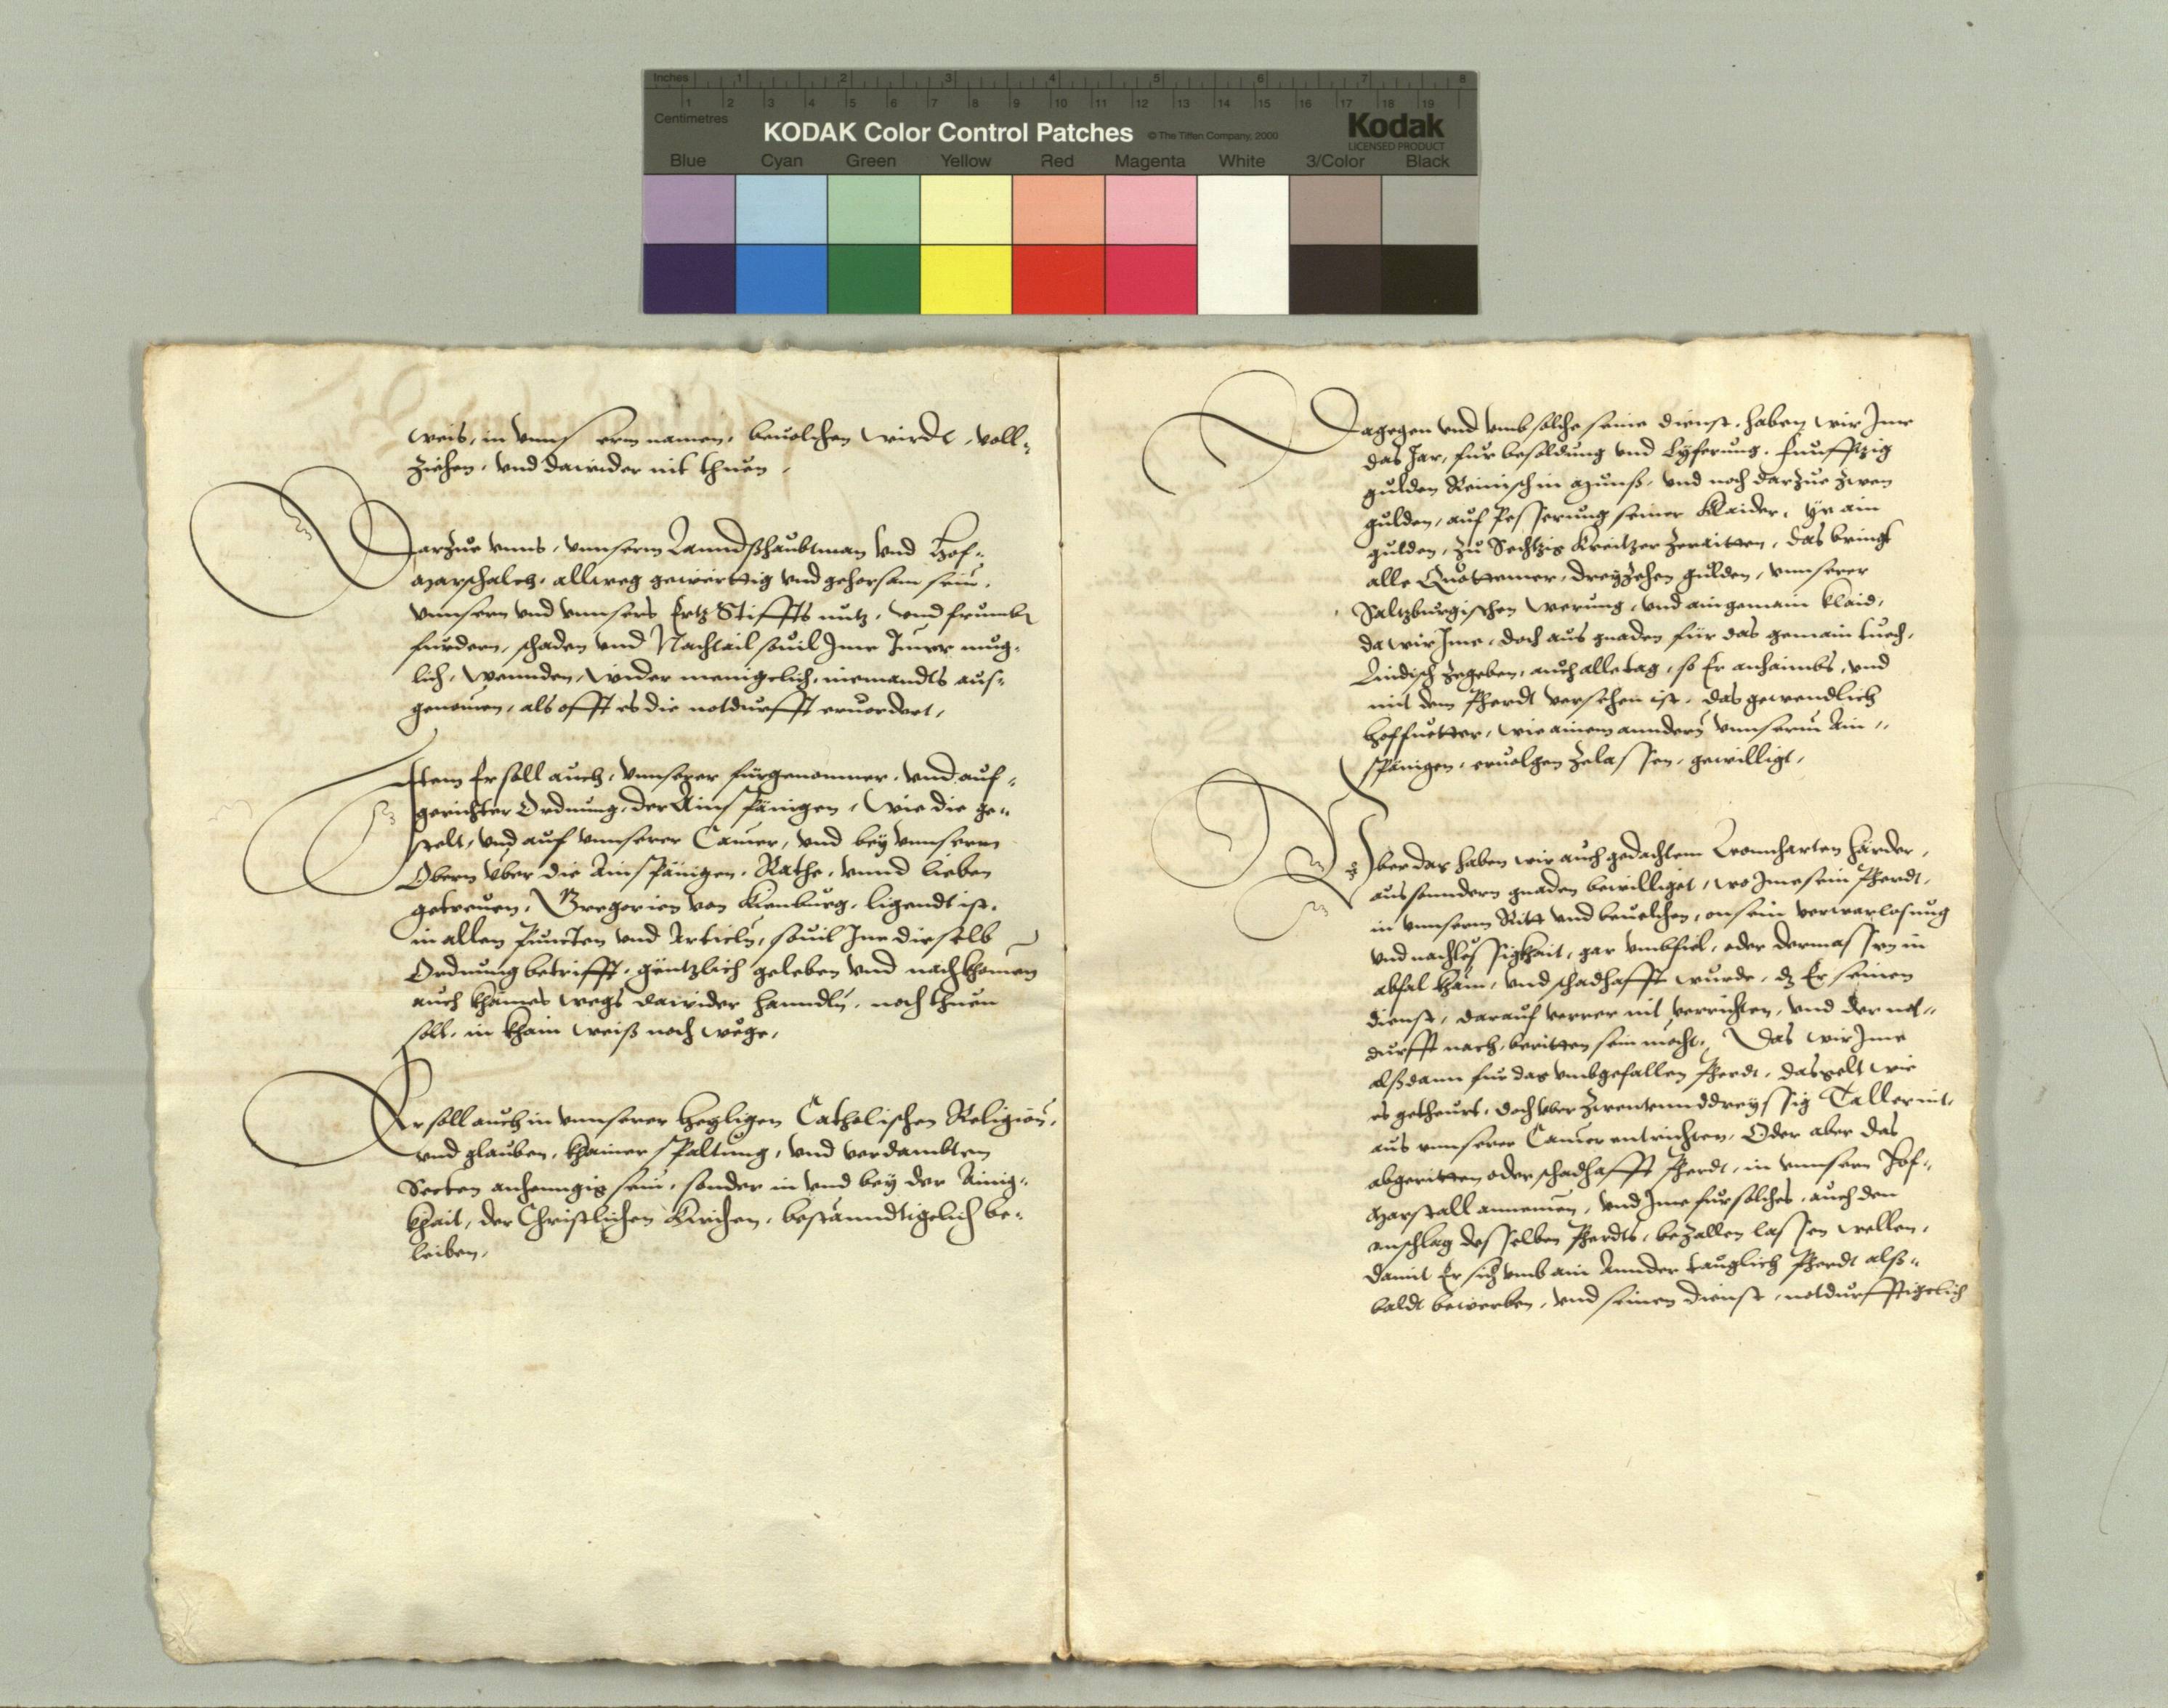 Inches 1 2 3 4 5 6 7 8
1 2 3 4 5 6 7 8 9 10 11 12 13 14 15 16 17 18 19
Centimetres
KODAK Color Control Patches © The Tiffen Company, 2000 Kodak
LICENSED PRODUCT
Blue Cyan Green Yellow Red Magenta White 3/Color Black
weis, in vnnserm namen, beuolchen wirdt, voll-
ziehen, vnd dawider nit thuen,
Darzue vnns, vnnserm Lanndßhaubtman vnd Hof-
marschalch, allweg gewerttig vnd gehorsam sein,
vnnsern vnd vnnsers Ertz Stiffts nutz, vnd frumben
furdern, schaden vnd Nachtail souil Jme Jmer mug-
lich, wennden, wider menigelich, niemandts aus-
genomen, als offt es die notdurfft eruordert,
Item Er soll auch, vnnserer fürgenomner, vnd auf-
gerichter Ordnung, der Ainspänigen, wie die ge-
stelt, vnd auf vnnserer Camer, vnd bey vnnserm
Obern über die Ainspänigen, Rathe, vnnd lieben
getreuen, Gregorien von Kienburg, ligendt ist,
in allen Puncten vnd Articln, souil Jne dieselb
Ordnung betrifft, gäntzlich geleben vnd nachkhomen
auch khaines wegs dawider hanndln, noch thuen
soll, in khain weiß noch wege,
Er soll auch in vnnserer heyligen Catholischen Religion,
vnd glauben, khainer Spaltung, vnd verdambten
Secten anhenngig sein, sonder in vnd bey der Ainig-
khait, der Christlichen Kirchen, bestanndtigelich be-
leiben,
Dagegen vnd vmb solche seine dienst, haben wir Jme
das Jar, fur besoldung vnd Lyferung, funfftzig
gulden Reinisch in Munß, vnd noch darzue zwen
gulden, auf Pesserung seiner Klaider, ye ain
gulden, zu Sechtzig Kreitzer zeraitten, das bringt
alle Quottemer, dreyzehen gulden, vnnserer
Saltzburgischen werung, vnd ain gemain klaid,
da wir Jme, doch aus gnaden für das gemain tuech,
Lindisch zegeben, auch alle tag, so Er anhaimbs, vnd
mit dem Pherdt versehen ist, das gewendlich
Hoffuetter, wie ainem anndern vnnserm Ain-
spänigen, eruolgen zelassen, gewilligt,
Vber das haben wir auch gedachtem Leonnharten härder,
aus sonndern gnaden bewilliget, wo Jme sein Pherdt,
in vnnserm Ritt vnd beuelchen, on sein verwarlosung
vnd nachlessigkhait, gar vmbfiel, oder dermassen in
abfal kham, vnd schadhafft wurde, dz Er seinen
dienst, darauf verrer nit verrichten, vnd der not-
durfft nach, beritten sein mocht, Das wir Jme
alßdann für das vmbgefallen Pherdt, dasgelt wie
es getheurt, doch vber zwenunddreyssig Taller nit,
aus vnnserer Camer entrichten, Oder aber das
abgeritten oder schadhafft Pherdt, in vnnsern Hof-
Marstall annemen, vnd Jme fur solches, auch den
anschlag desselben Pherdts, bezallen lassen wellen,
damit Er sich vmb ain Annder tauglich Pherdt alß-
baldt bewerben, vnd seinen dienst, notdurfftigelich